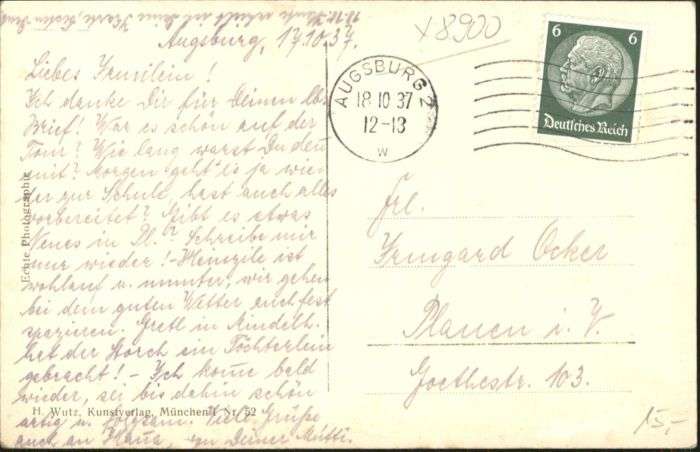 18.10. Heute erhielt ich Deine Karte, besten Dank
Augsburg, 17.10.37.
x8900
Liebes Irmilein!
Ich danke Dir für Deinen lb.
Brief! War es schön auf der
Tour? Wie lang warst Du denn
mit? Morgen geht es ja wie-
der zur Schule, hast auch alles
vorbereitet? Gibt es etwas
Neues in Pl.? Schreibe mir
nur wieder! - ist
wohlauf u. munter, wir gehen
bei dem guten Wetter auch fest
spazieren. Gretl in Mindelh.
hat der Storch ein Töchterlein
gebracht! - Ich kom̄e bald
wieder, sei bis dahin schön
artig u. folgsam. Viele Grüße
auch an Han̄a, von Deiner Mutti.
Echte Photographie
H. Wutz, Kunstverlag, München 1 Nr. 52
AUGSBURG 2
18 10 37
12-13
w
6 6
Deutsches Reich
Frl.
Irmgard Ocker
Plauen i. V.
Goethestr. 103.
15,-